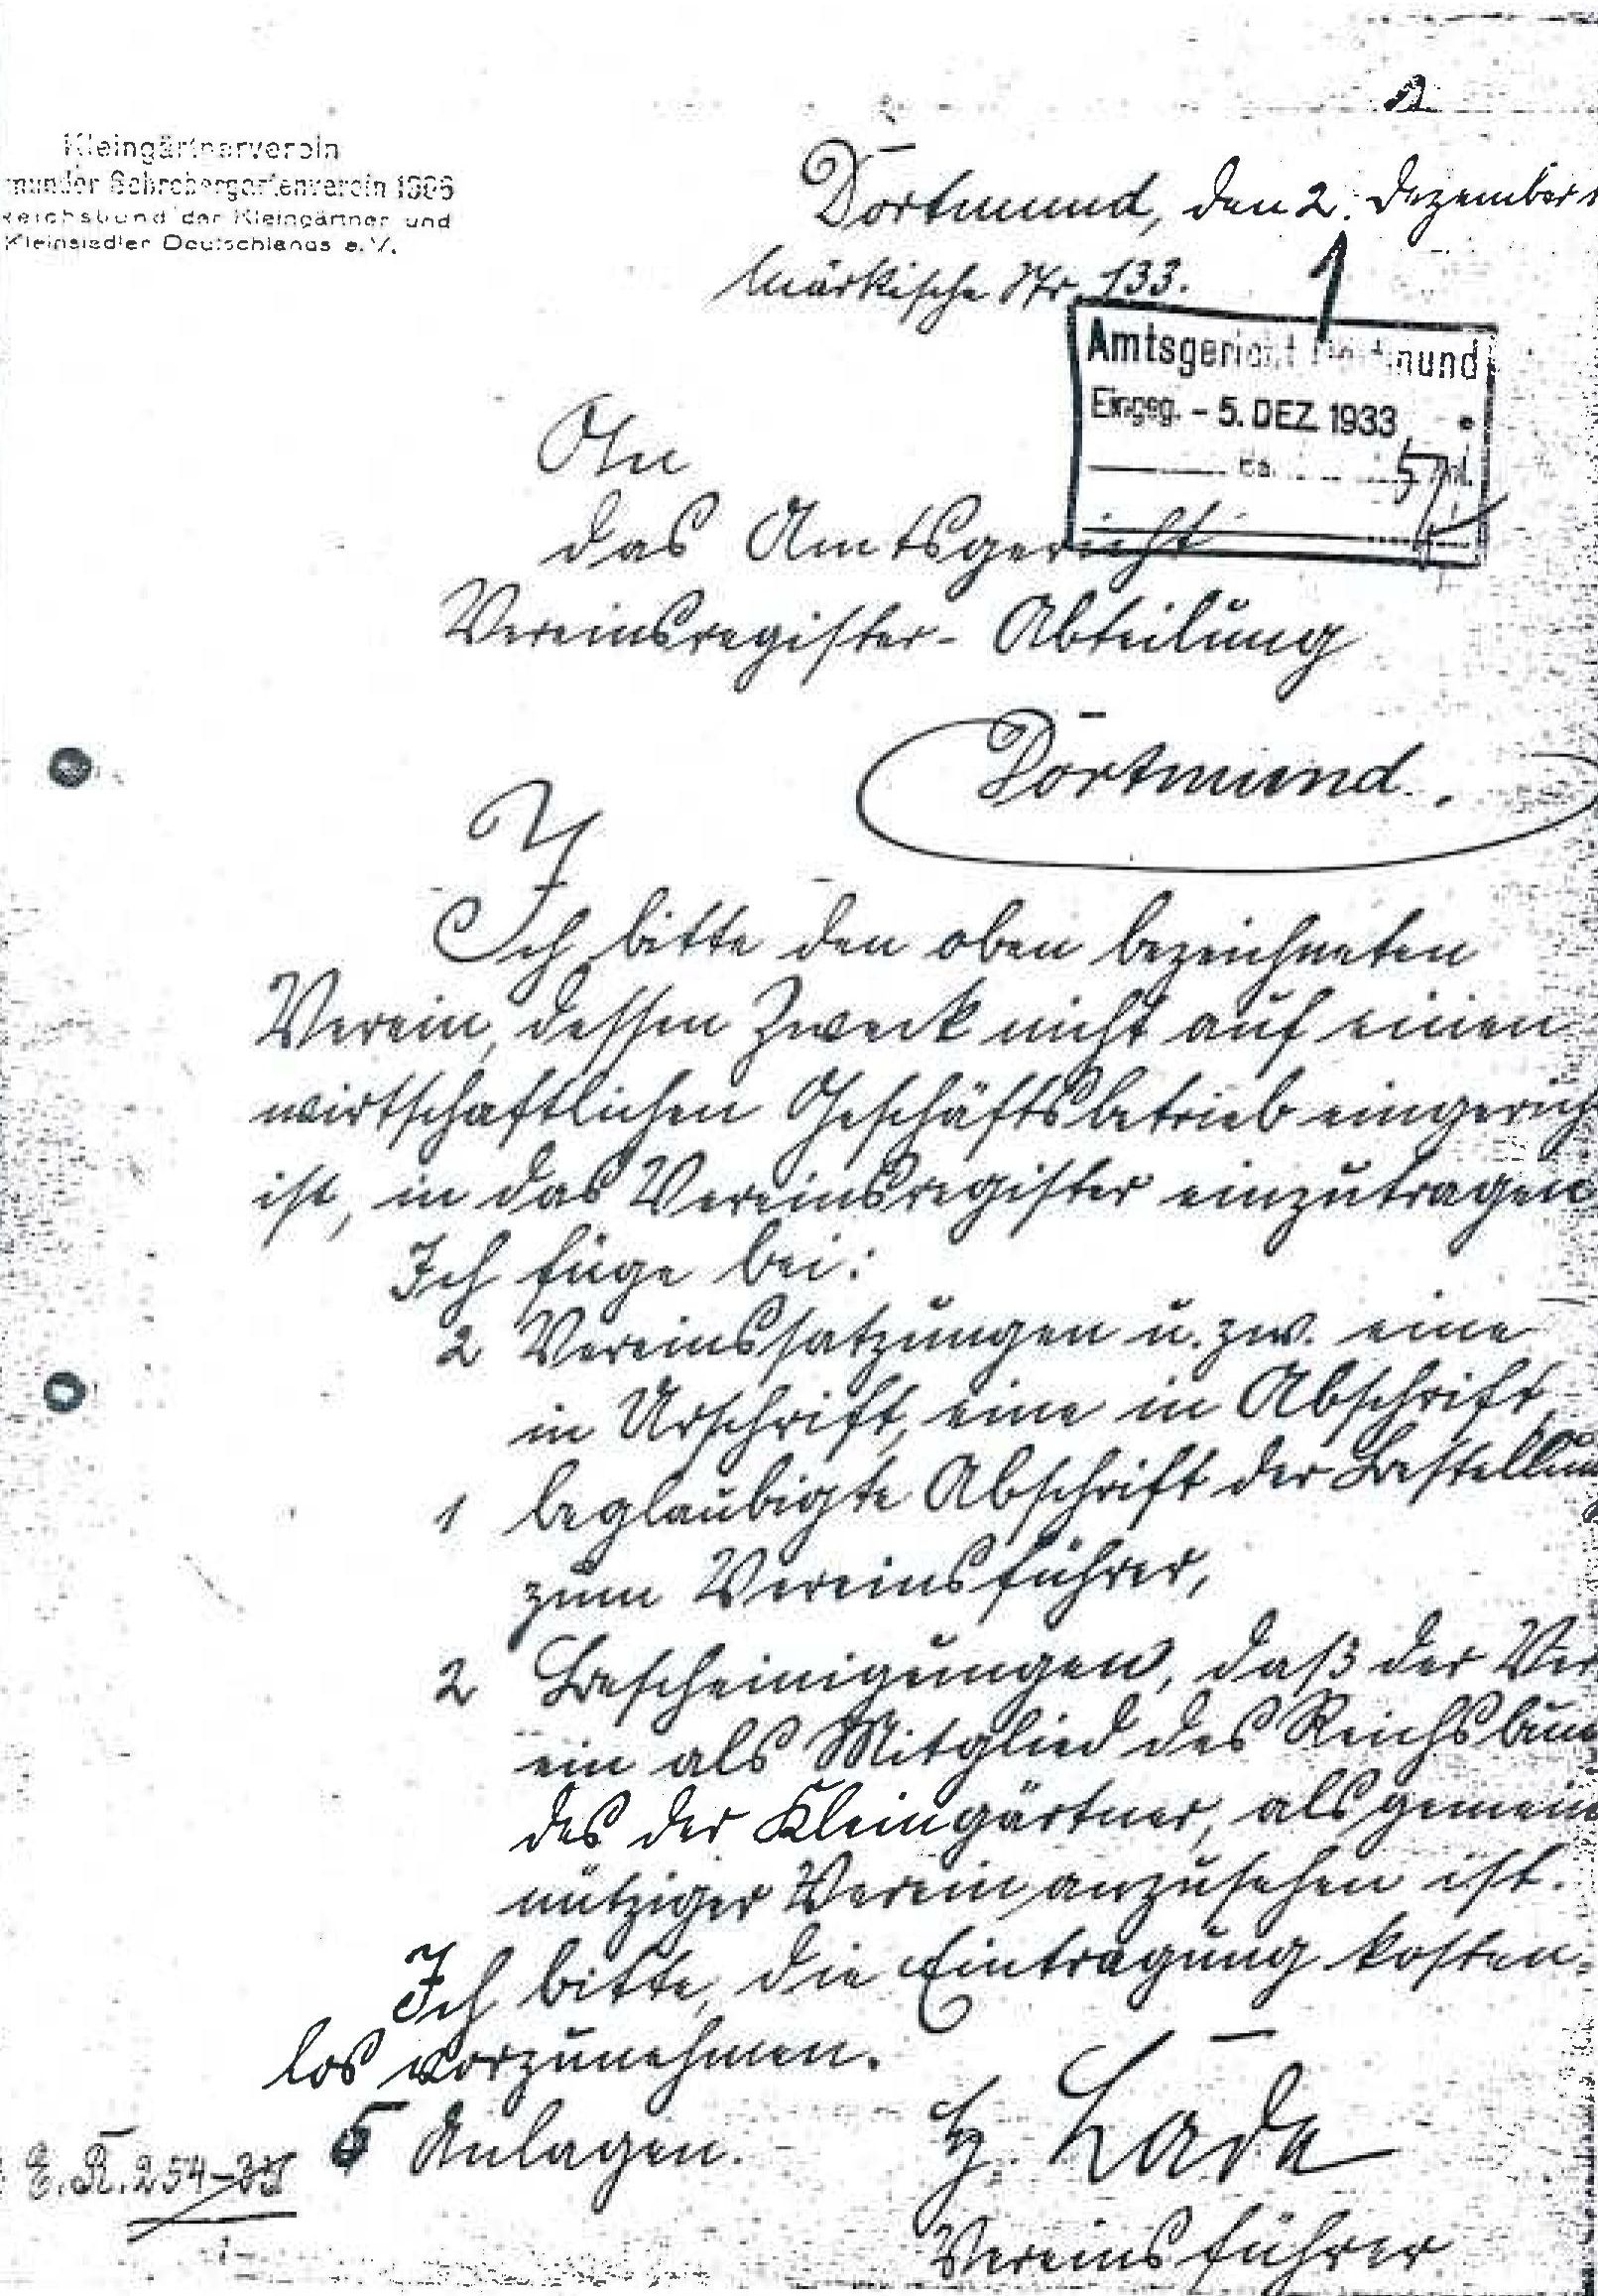 2
Kleingärtnerverein
munder Schrebergartenverein 1906
Reichsbund der Kleingärtner und
Kleinsiedler Deutschlands e. V.
Dortmund, den 2. Dezember 1
Märkische Str. 133.
Amtsgericht Dortmund
Eingeg. - 5. DEZ. 1933
An
das Amtsgericht
Vereinsregister-Abteilung
Dortmund.
Ich bitte den oben bezeichneten
Verein, dessen Zweck nicht auf einen
wirtschaftlichen Geschäftsbetrieb eingerich
ist, in das Vereinsregister einzutragen
Ich füge bei:
2 Vereinssatzungen u. zw. eine
in Urschrift, eine in Abschrift,
1 beglaubigte Abschrift der Bestellung
zum Vereinsführer,
2 Bescheinigungen, daß der Ver
ein als Mitglied des Reichsbun
des der Kleingärtner, als gemein
nütziger Verein anzusehen ist.
Ich bitte, die Eintragung kosten-
los vorzunehmen.
5 Anlagen.
H. Lade
Vereinsführer
E.R. 254-33